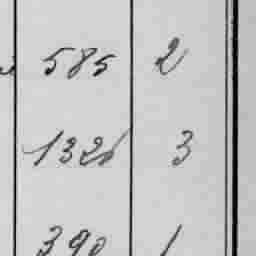 585 2
1326 3
390 1